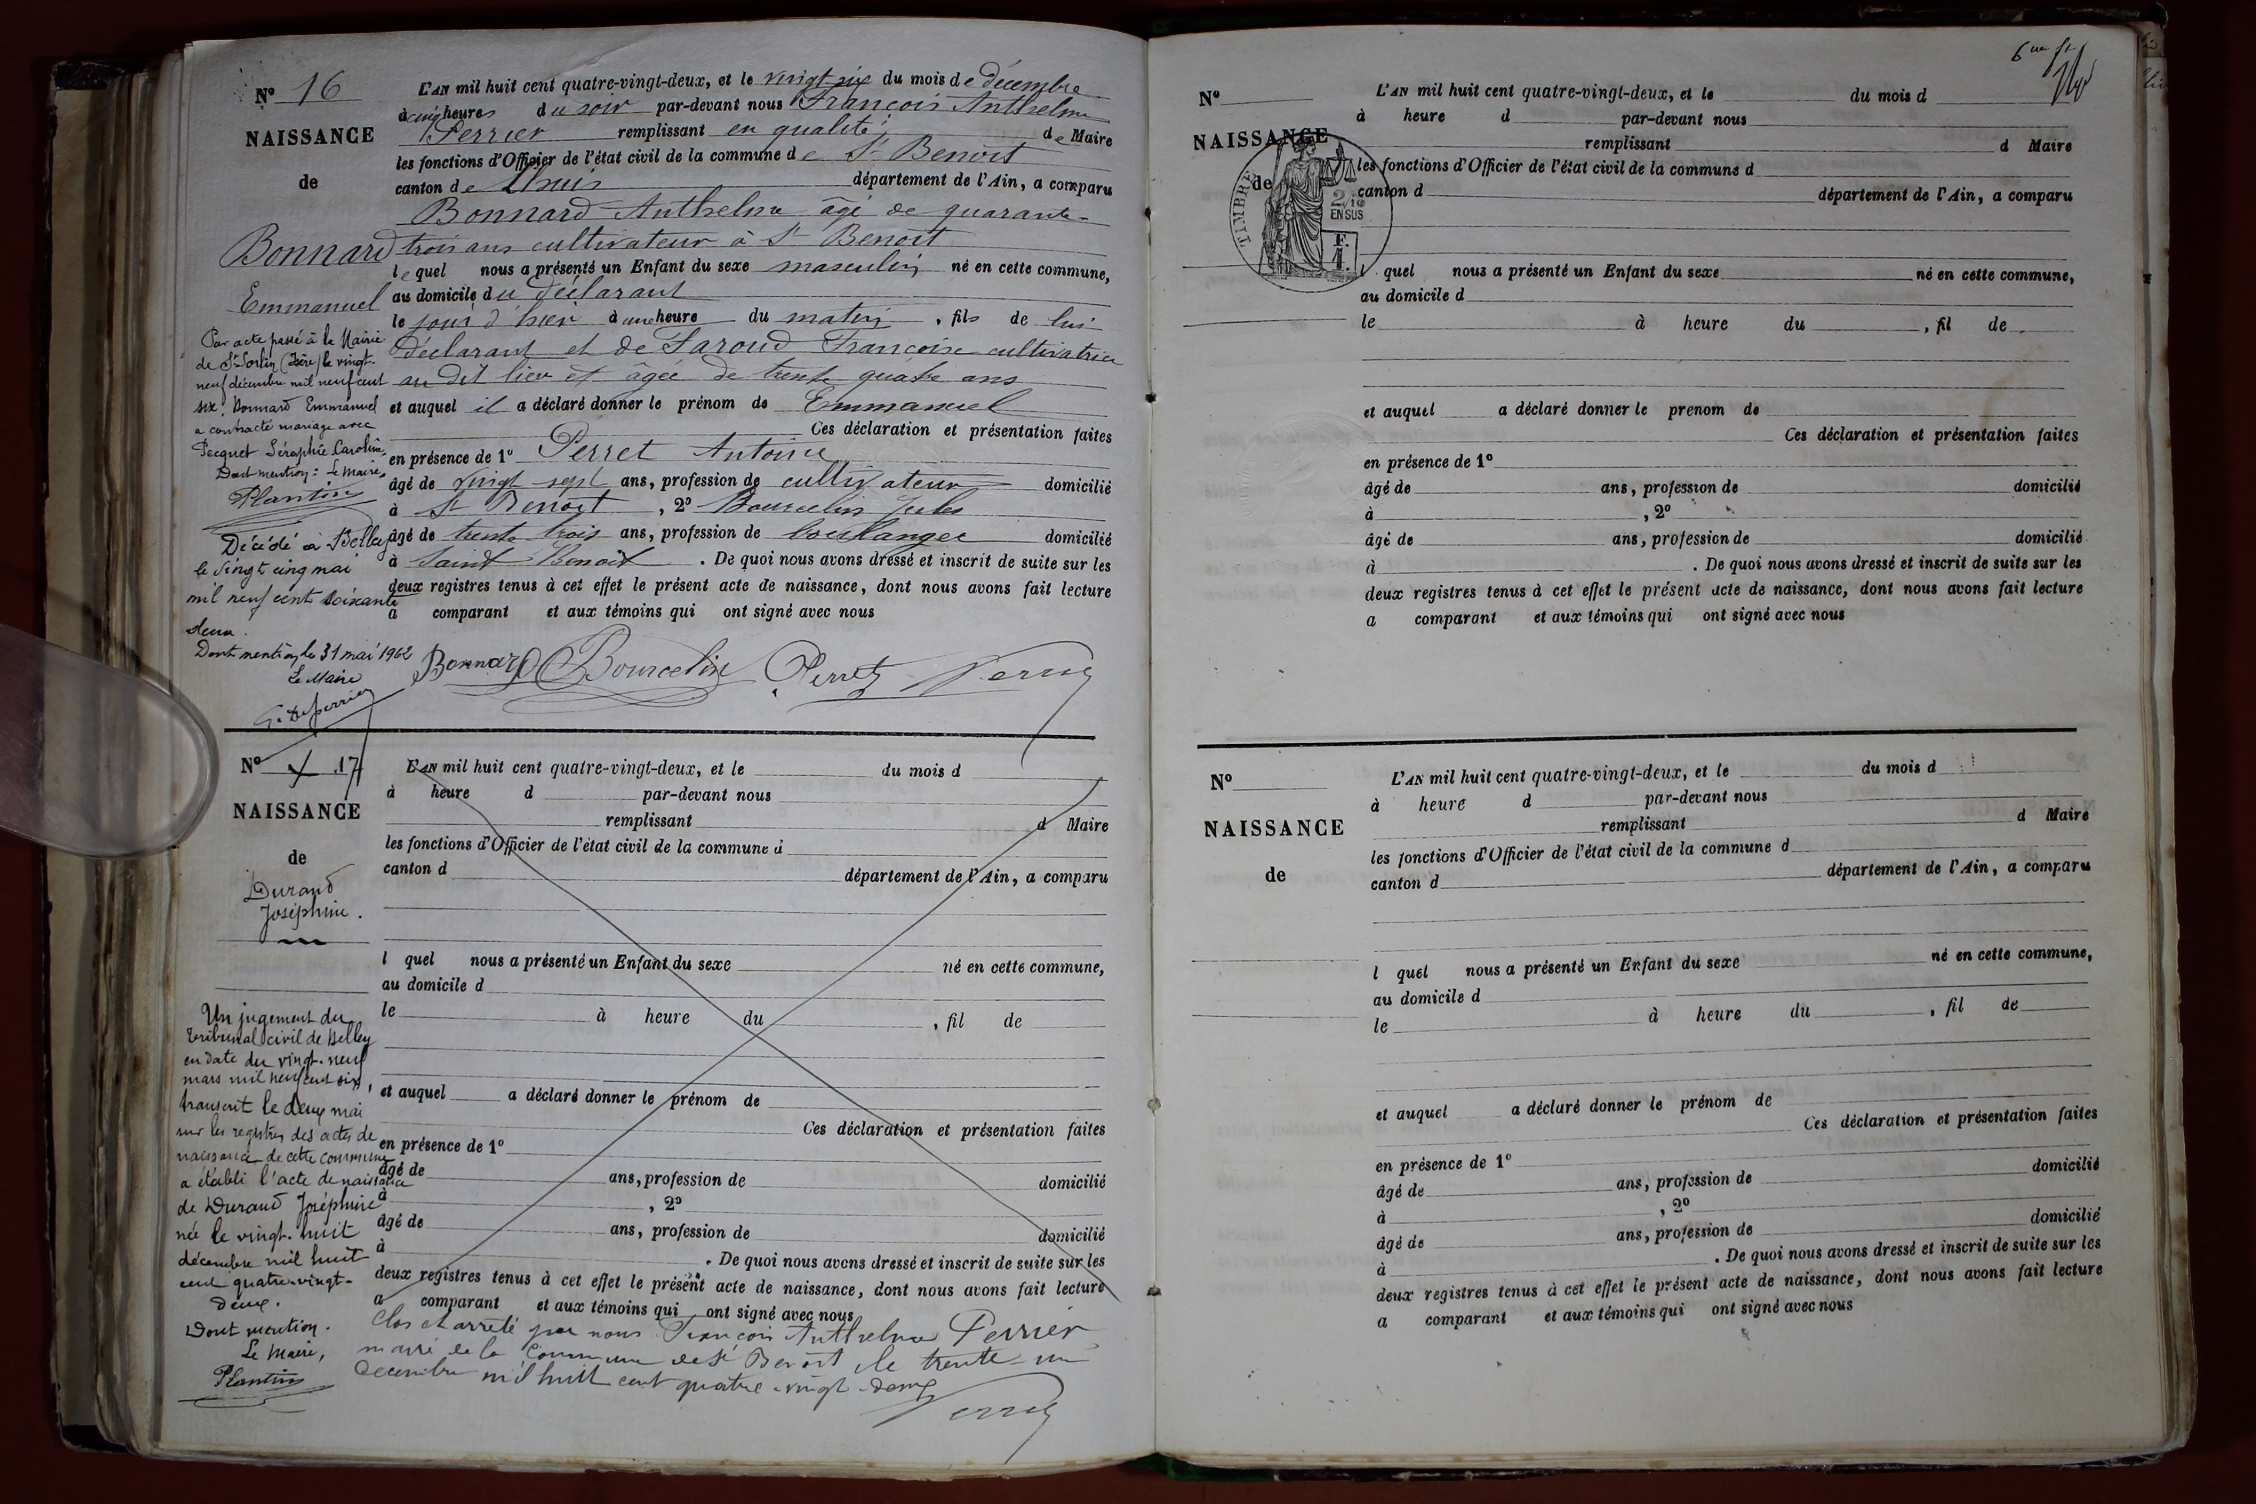 N° 16
NAISSANCE
de
Bonnard
Emmanuel
Par acte passé à la Mairie
de St Sorlin (Isère) le vingt-
neuf décembre mil neuf cent
six, Bonnard Emmanuel
a contracté mariage avec
Pecquet Séraphie Caroline.
Dont mention : Le Maire,
Plantin
Décédé à Belley
le vingt cinq mai
mil neuf cent soixante
deux.
Dont mention, le 31 mai 1962
Le Maire
L'AN mil huit cent quatre-vingt-deux, et le vingt six du mois de décembre
à cinq heures du soir par-devant nous François Anthelme
Perrier remplissant en qualité de Maire
les fonctions d'Officier de l'état civil de la commune de St Benoit
canton de Lhuis département de l'Ain, a comparu
Bonnard Anthelme âgé de quarante-
trois ans cultivateur à St Benoit
lequel nous a présenté un Enfant du sexe masculin né en cette commune,
au domicile du déclarant
le jour d'hier à une heure du matin, fils de lui
déclarant et de Saroud Françoise cultivatrice
au dit lieu et âgée de trente quatre ans
et auquel il a déclaré donner le prénom de Emmanuel
Ces déclaration et présentation faites
en présence de 1° Perret Antoine
âgé de vingt sept ans, profession de cultivateur domicilié
à St Benoit, 2° Bourcelin Jules
âgé de trente trois ans, profession de boulanger domicilié
à Saint Benoit. De quoi nous avons dressé et inscrit de suite sur les
deux registres tenus à cet effet le présent acte de naissance, dont nous avons fait lecture
a comparant et aux témoins qui ont signé avec nous
Bonnard Bourcelin Perret Perrier
N° 17
NAISSANCE
de
Durand
Joséphine.
Un jugement du
tribunal civil de Belley
en date du vingt-neuf
mars mil neuf cent six,
transcrit le deux mai
sur les registres des actes de
naissance de cette commune
a établi l'acte de naissance
de Durand Joséphine
née le vingt-huit
décembre mil huit
cent quatre-vingt-
deux.
Dont mention.
Le Maire,
Plantin
L'AN mil huit cent quatre-vingt-deux, et le du mois d
à heure d par-devant nous
remplissant d Maire
les fonctions d'Officier de l'état civil de la commune d
canton d département de l'Ain, a comparu
l quel nous a présenté un Enfant du sexe né en cette commune,
au domicile d
le à heure du, fil de
et auquel a déclaré donner le prénom de
Ces déclaration et présentation faites
en présence de 1°
âgé de ans, profession de domicilié
à, 2°
âgé de ans, profession de domicilié
à. De quoi nous avons dressé et inscrit de suite sur les
deux registres tenus à cet effet le présent acte de naissance, dont nous avons fait lecture
a comparant et aux témoins qui ont signé avec nous
Clos et arrêté par nous François Anthelme Perrier
maire de la Commune de St Benoit le trente-un
décembre mil huit cent quatre-vingt-deux
Perrier
N°
NAISSANCE
de
TIMBRE
2/10
EN SUS
F.
1.
L'AN mil huit cent quatre-vingt-deux, et le du mois d
à heure d par-devant nous
remplissant d Maire
les fonctions d'Officier de l'état civil de la commune d
canton d département de l'Ain, a comparu
l quel nous a présenté un Enfant du sexe né en cette commune,
au domicile d
le à heure du, fil de
et auquel a déclaré donner le prenom de
Ces déclaration et présentation faites
en présence de 1°
âgé de ans, profession de domicilié
à, 2°
âgé de ans, profession de domicilié
à. De quoi nous avons dressé et inscrit de suite sur les
deux registres tenus à cet effet le présent acte de naissance, dont nous avons fait lecture
a comparant et aux témoins qui ont signé avec nous
N°
NAISSANCE
de
L'AN mil huit cent quatre-vingt-deux, et le du mois d
à heure d par-devant nous
remplissant d Maire
les fonctions d'Officier de l'état civil de la commune d
canton d département de l'Ain, a comparu
l quel nous a présenté un Enfant du sexe né en cette commune,
au domicile d
le à heure du, fil de
et auquel a déclaré donner le prénom de
Ces déclaration et présentation faites
en présence de 1°
âgé de ans, profession de domicilié
à, 2°
âgé de ans, profession de domicilié
à. De quoi nous avons dressé et inscrit de suite sur les
deux registres tenus à cet effet le présent acte de naissance, dont nous avons fait lecture
a comparant et aux témoins qui ont signé avec nous